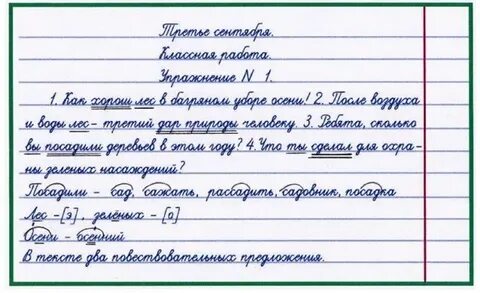 Третье сентября.
Классная работа.
Упражнение N 1.
1. Как хорош лес в багряном уборе осени! 2. После воздуха
и воды лес – третий дар природы человеку. 3. Ребята, сколько
вы посадили деревьев в этом году? 4. Что ты сделал для охра-
ны зеленых насаждений?
Посадили – сад, сажать, рассадить, садовник, посадка
Лес – [э], зелёных – [о]
Осени – осенний
В тексте два повествовательных предложения.